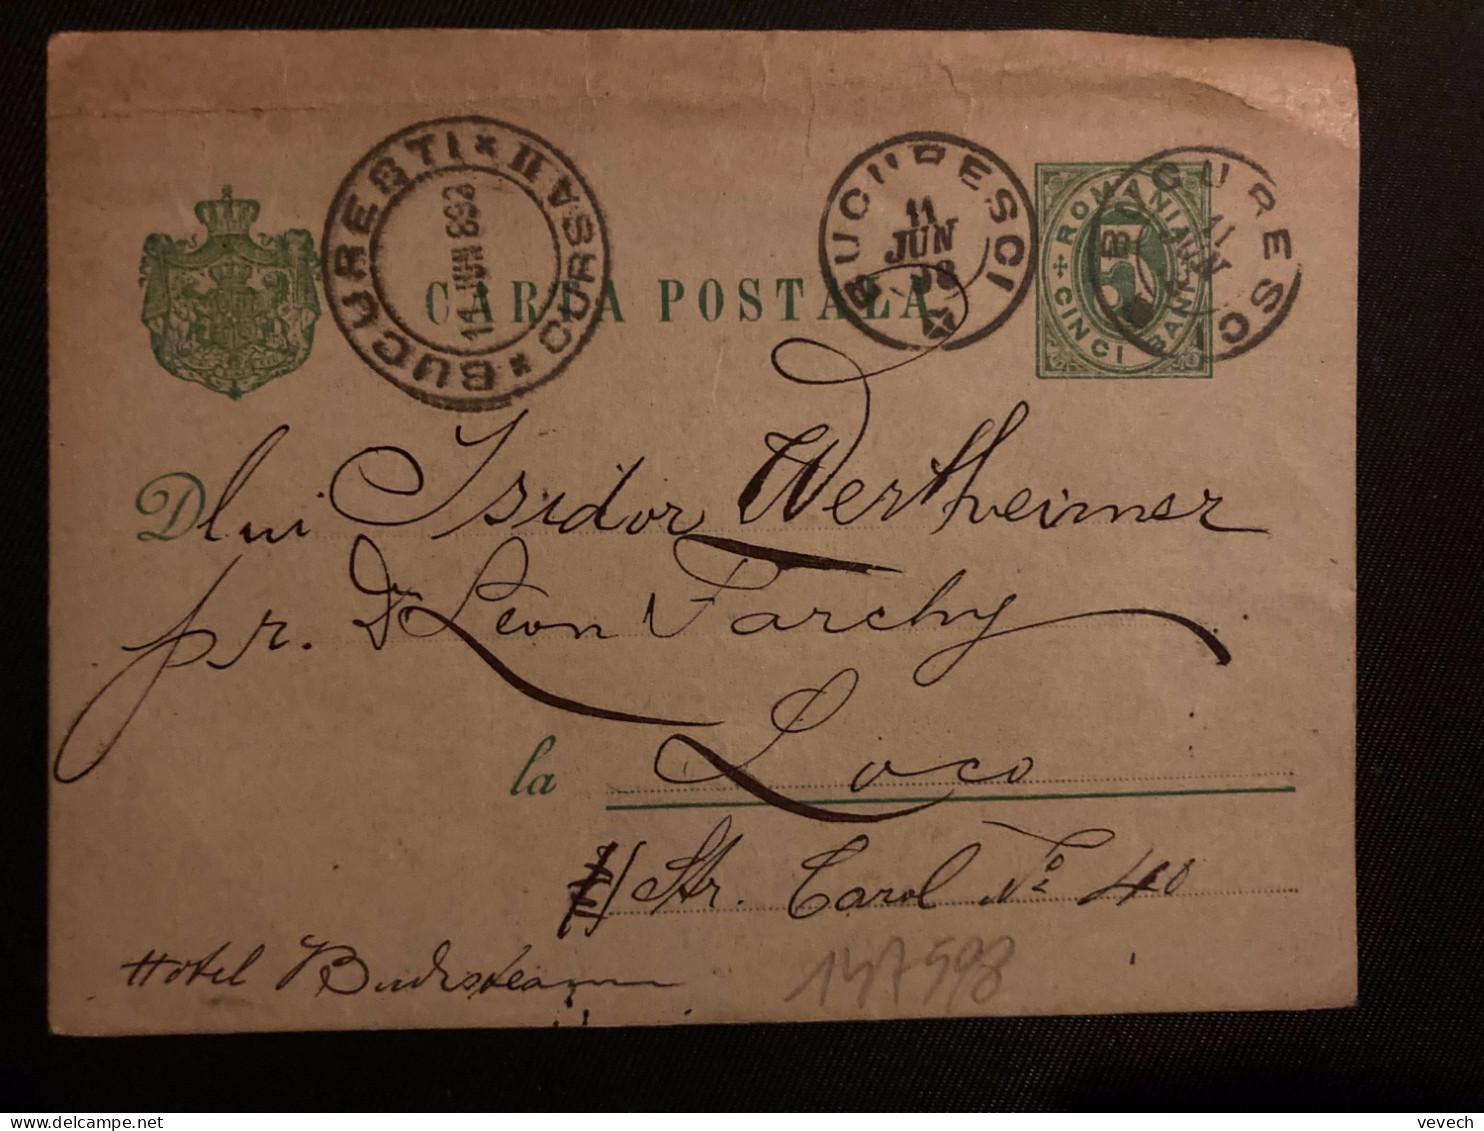 BUCURESTI * II CURSA *
11 JUN 893
BUCURESCI
11
JUN
BUCURESCI
11
JUN
ROMANIA
5
CINCI BANI
CARTA POSTALA
Dlui Isidor Wertheimer
pr. Dr Léon Parchy
la Loco
Str. Carol No 40
Hotel
147598
vevech